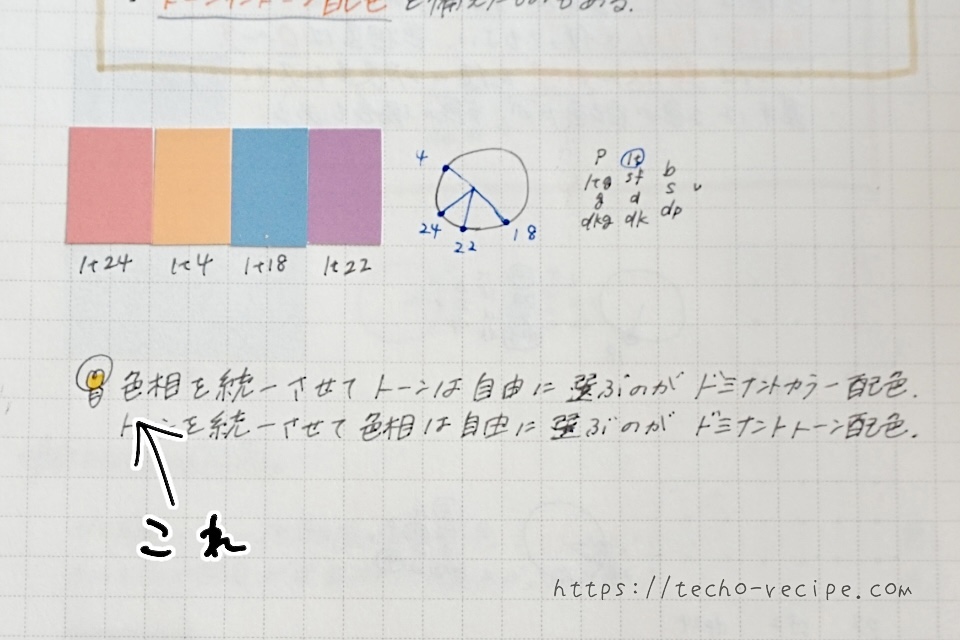 ドミナントトーン配色
lt24 lt4 lt18 lt22
4
24
22
18
p lt b
ltg sf s v
g d dp
dkg dk
色相を統一させてトーンは自由に選ぶのがドミナントカラー配色.
トーンを統一させて色相は自由に選ぶのがドミナントトーン配色.
これ
https://techo-recipe.com